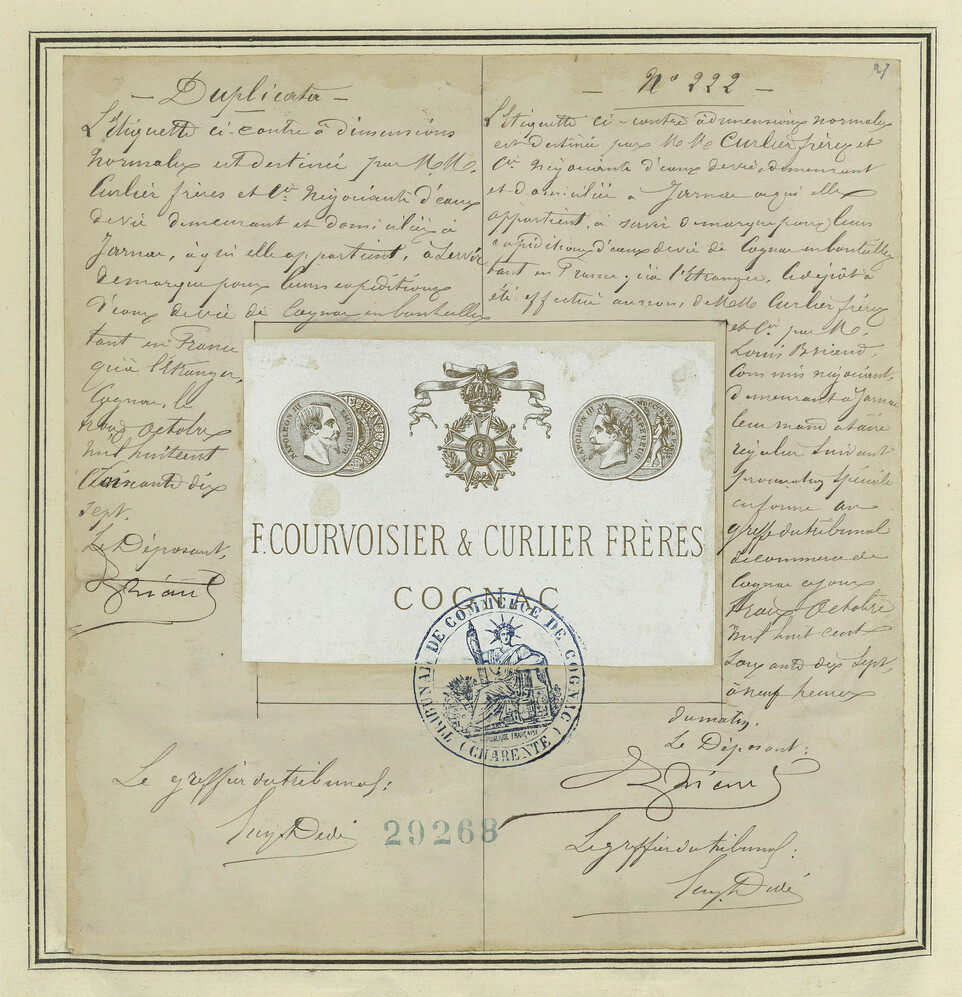 — Duplicata —
L'Etiquette ci-contre à dimensions
normales est destinée par M.M.
Curlier frères et Cie Négociants d'eaux
de vie demeurant et domiciliés à
Jarnac, à qui elle appartient, à servir
de marque pour leurs expéditions
d'eaux de vie de Cognac en bouteilles
tant en France
qu'à l'étranger,
Cognac, le
trois Octobre
mil huit cent
soixante dix
sept.
Le Déposant,
Briand
27
— No 222 —
L'Etiquette ci-contre à dimensions normales
est destinée par M.M. Curlier frères et
Cie Négociants d'eaux de vie, demeurant
et domiciliés à Jarnac à qui elle
appartient, à servir de marque pour leurs
expéditions d'eaux de vie de Cognac en bouteilles
tant en France qu'à l'Etranger. Le dépôt a
été effectué au nom, de MM Curlier frères
et Cie par M.
Louis Briand,
Commis négociant,
demeurant à Jarnac
leur mandataire
régulier suivant
procuration spéciale
conforme au
greffe du tribunal
de commerce de
Cognac ce jour
trois Octobre
mil huit cent
soixante dix sept,
à neuf heures
du matin.
Le Déposant:
Briand
NAPOLEON III EMPEREUR
NAPOLEON III EMPEREUR
F. COURVOISIER & CURLIER FRÈRES
COGNAC
TRIBUNAL DE COMMERCE DE COGNAC
RÉPUBLIQUE FRANÇAISE
(CHARENTE)
Le greffier du tribunal:
29268
Le greffier du tribunal: